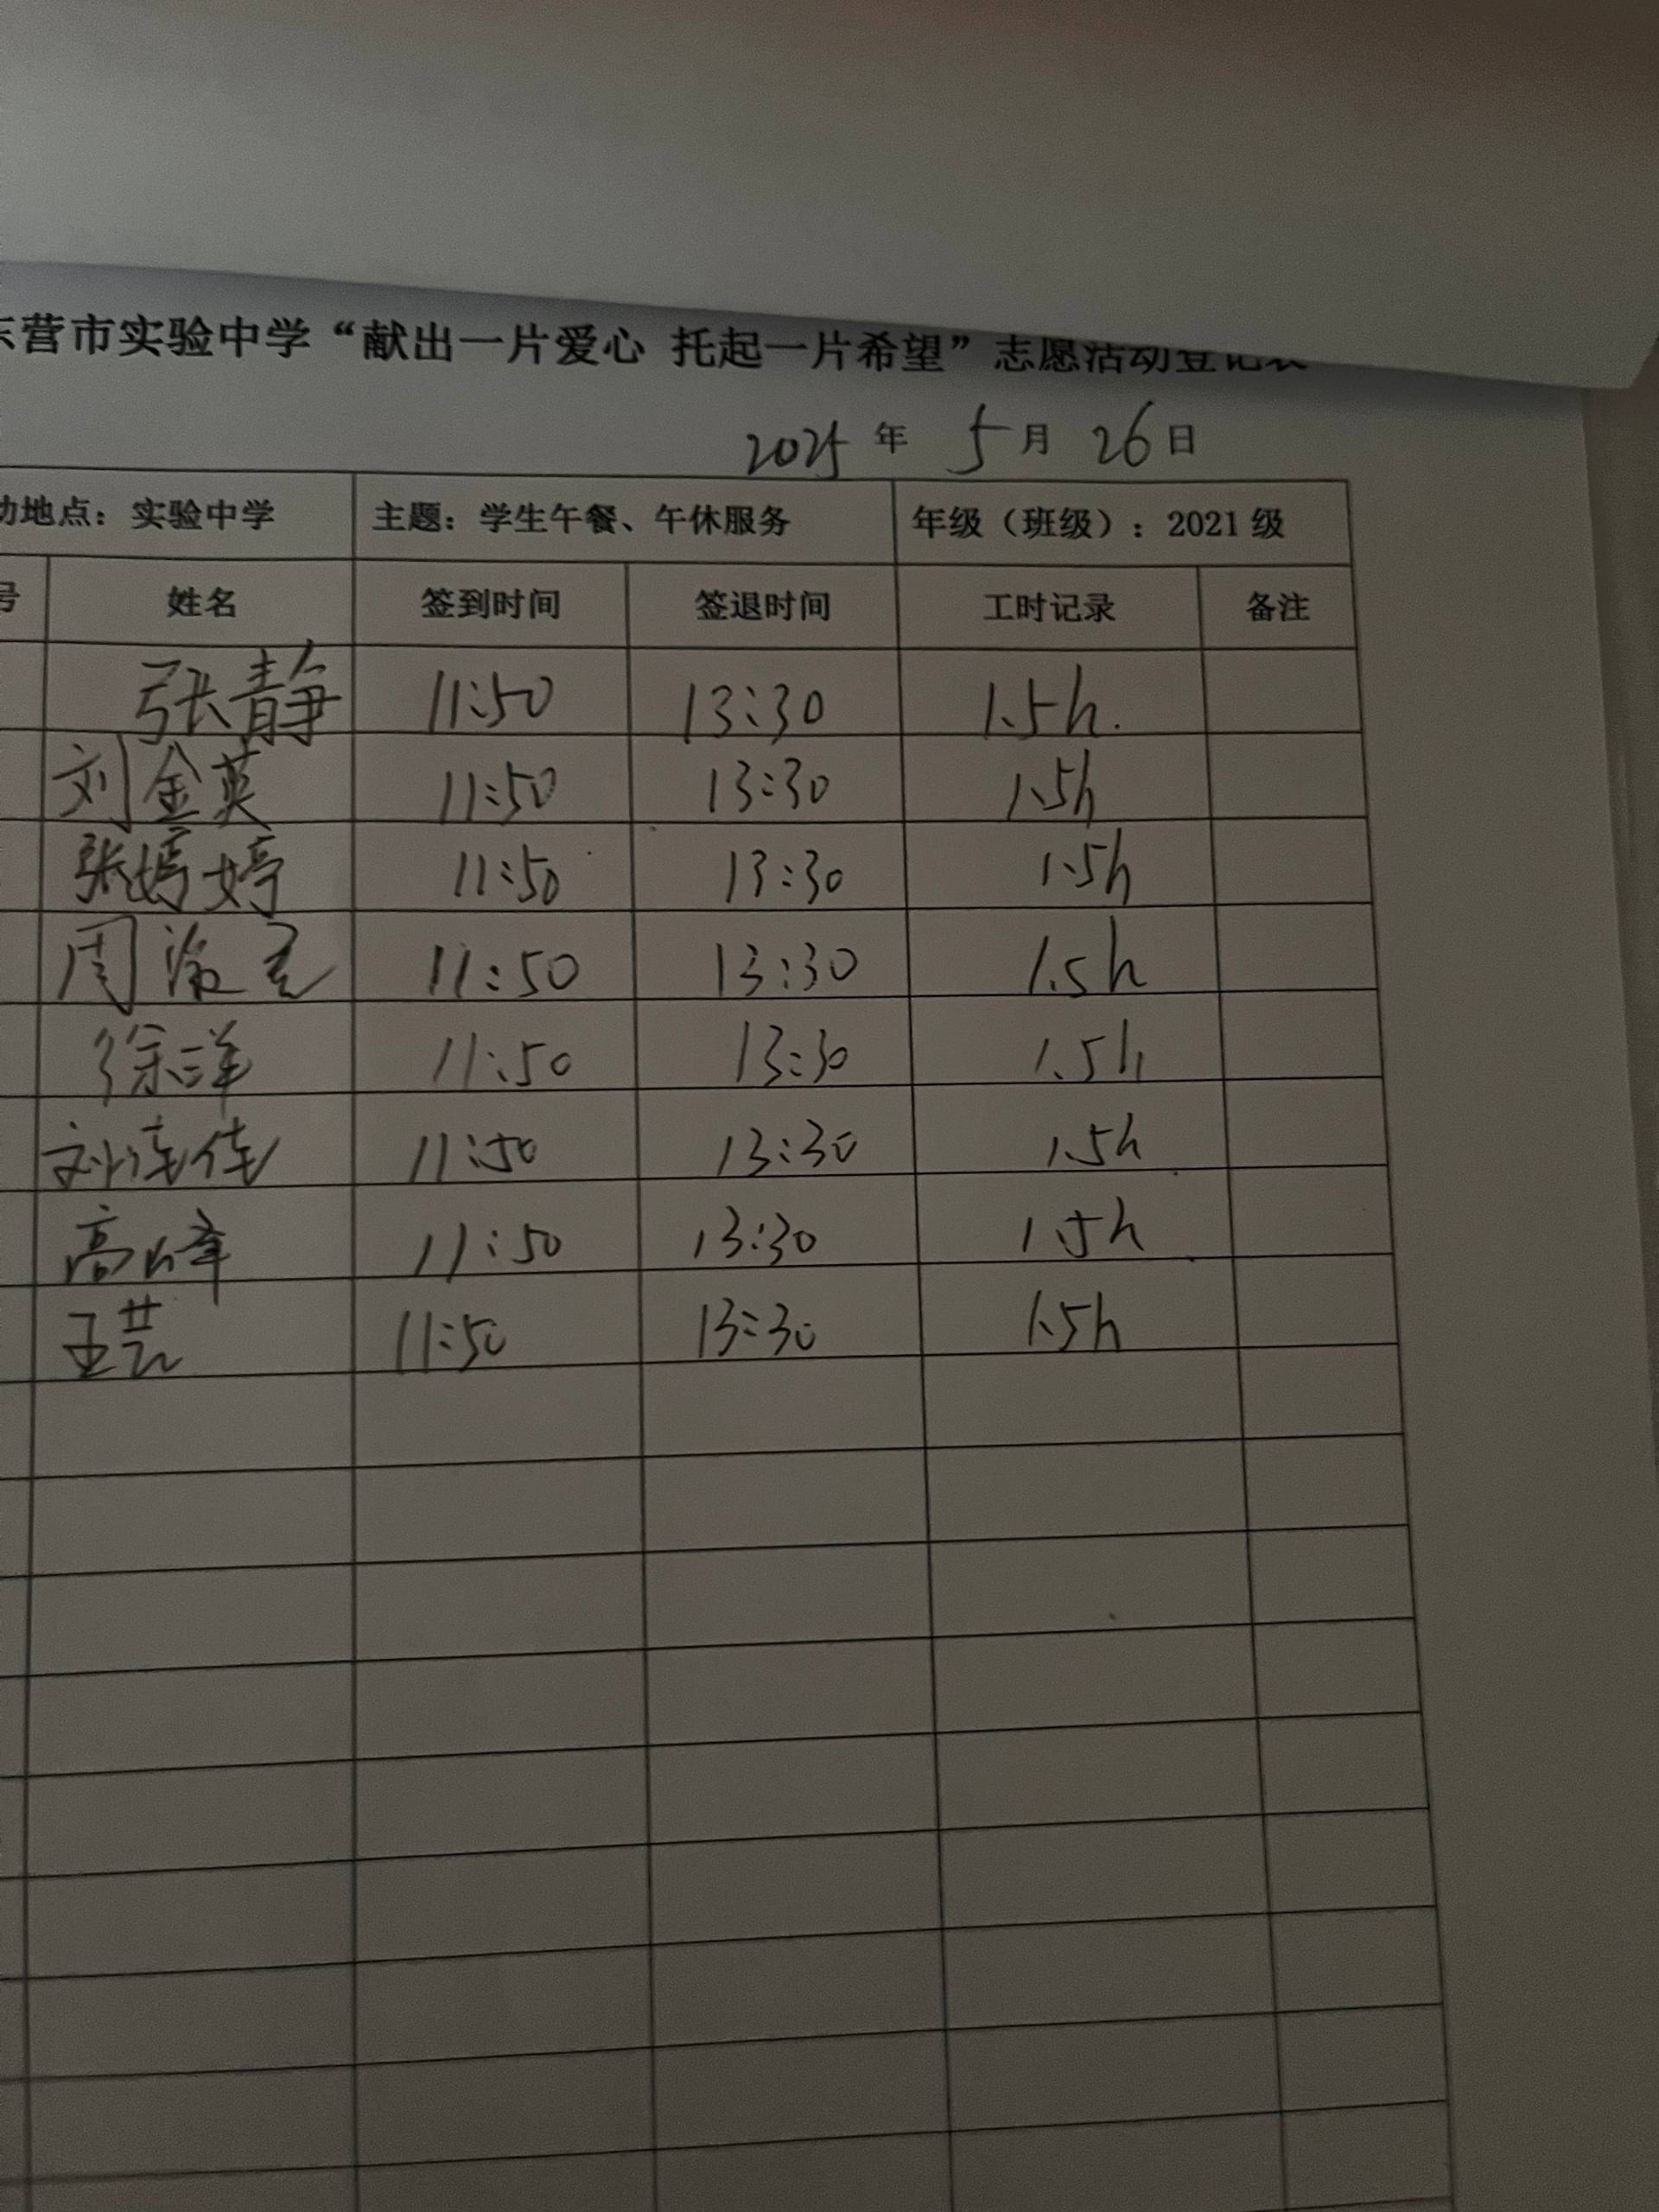 营市实验中学“献出一片爱心 托起一片希望”志愿活动登记表
2025年 5月 26日
动地点：实验中学 主题：学生午餐、午休服务 年级（班级）：2021级
号 姓名 签到时间 签退时间 工时记录 备注
张静 11:50 13:30 1.5h.
刘金英 11:50 13:30 1.5h
张嫣婷 11:50 13:30 1.5h
周 11:50 13:30 1.5h
徐洋 11:50 13:30 1.5h
刘佳 11:50 13:30 1.5h
高峰 11:50 13:30 1.5h
王芸 11:50 13:30 1.5h